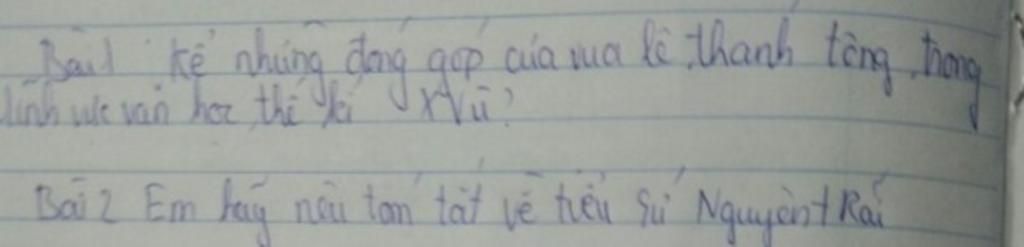 Bài 1 kể những đóng góp của vua lê thanh tông trong
lĩnh vực văn học thế kỉ XVII?
Bài 2 Em hãy nêu tóm tắt về tiểu sử Nguyên t Rãi